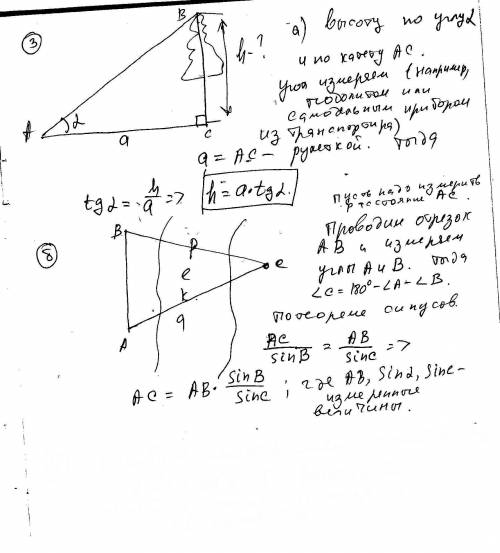 ③
B
h-?
A
α
a
C
а) высоту по углу α
и по катету AC.
угол измеряем (например,
теодолитом или
самодельным прибором
из транспортира)
a = AC - рулеткой. Тогда
tg α = h/a => h = a·tg α.
Пусть надо измерить
расстояние AC.
⑧
B
p
e
к
a
A
C
Проводим отрезок
AB и измеряем
углы A и B. Тогда
∠C = 180° - ∠A - ∠B.
По теореме синусов
AC/sinB = AB/sinC =>
AC = AB · sinB/sinC ; где AB, sin α, sin C -
измеренные
величины.